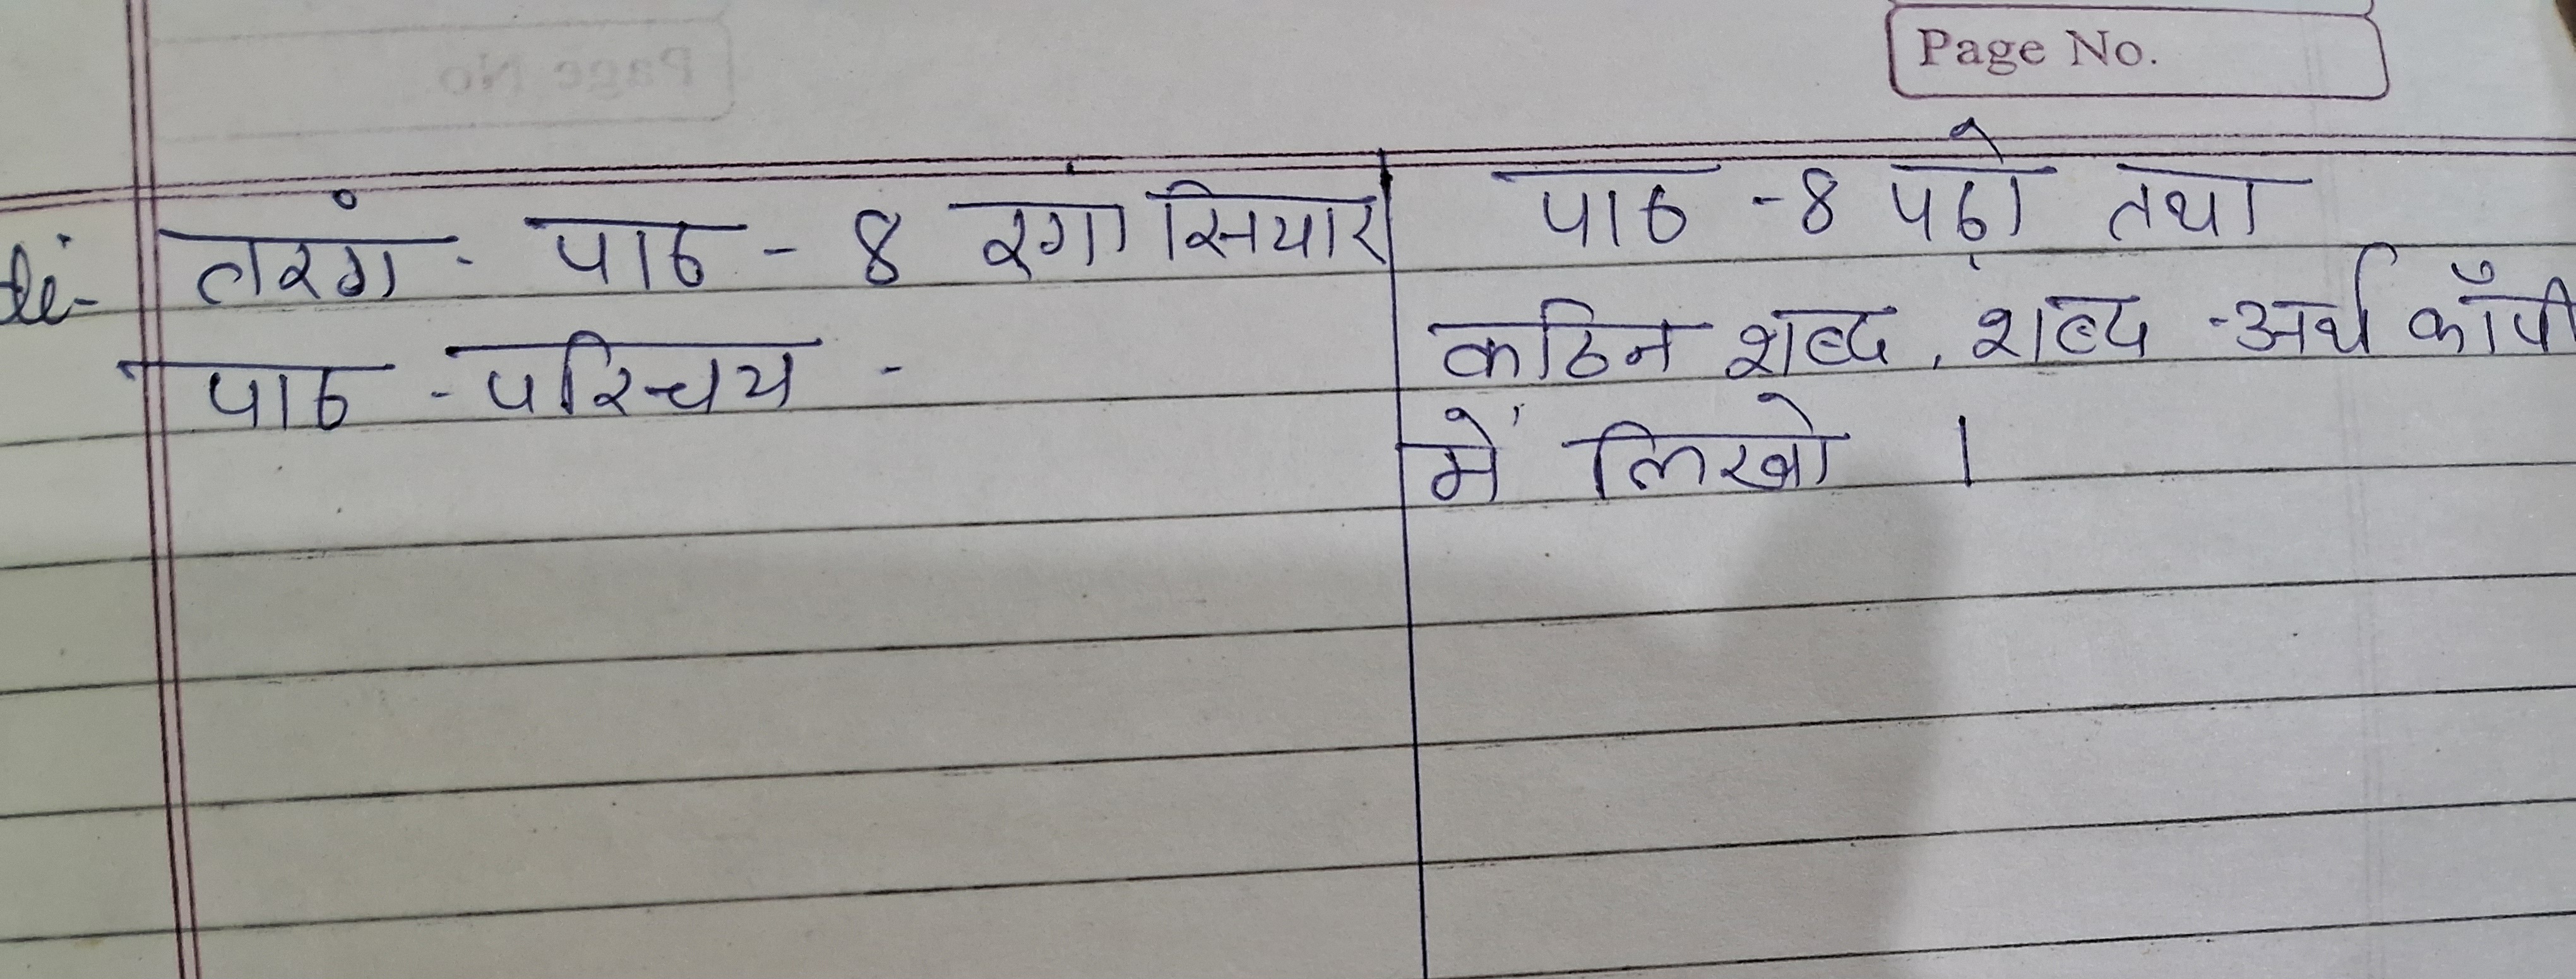 Page No.
तरंग - पाठ - 8 रगा सियार
पाठ - परिचय -
पाठ - 8 पढ़ो तथा
कठिन शब्द, शब्द - अर्थ कॉपी
में लिखो ।